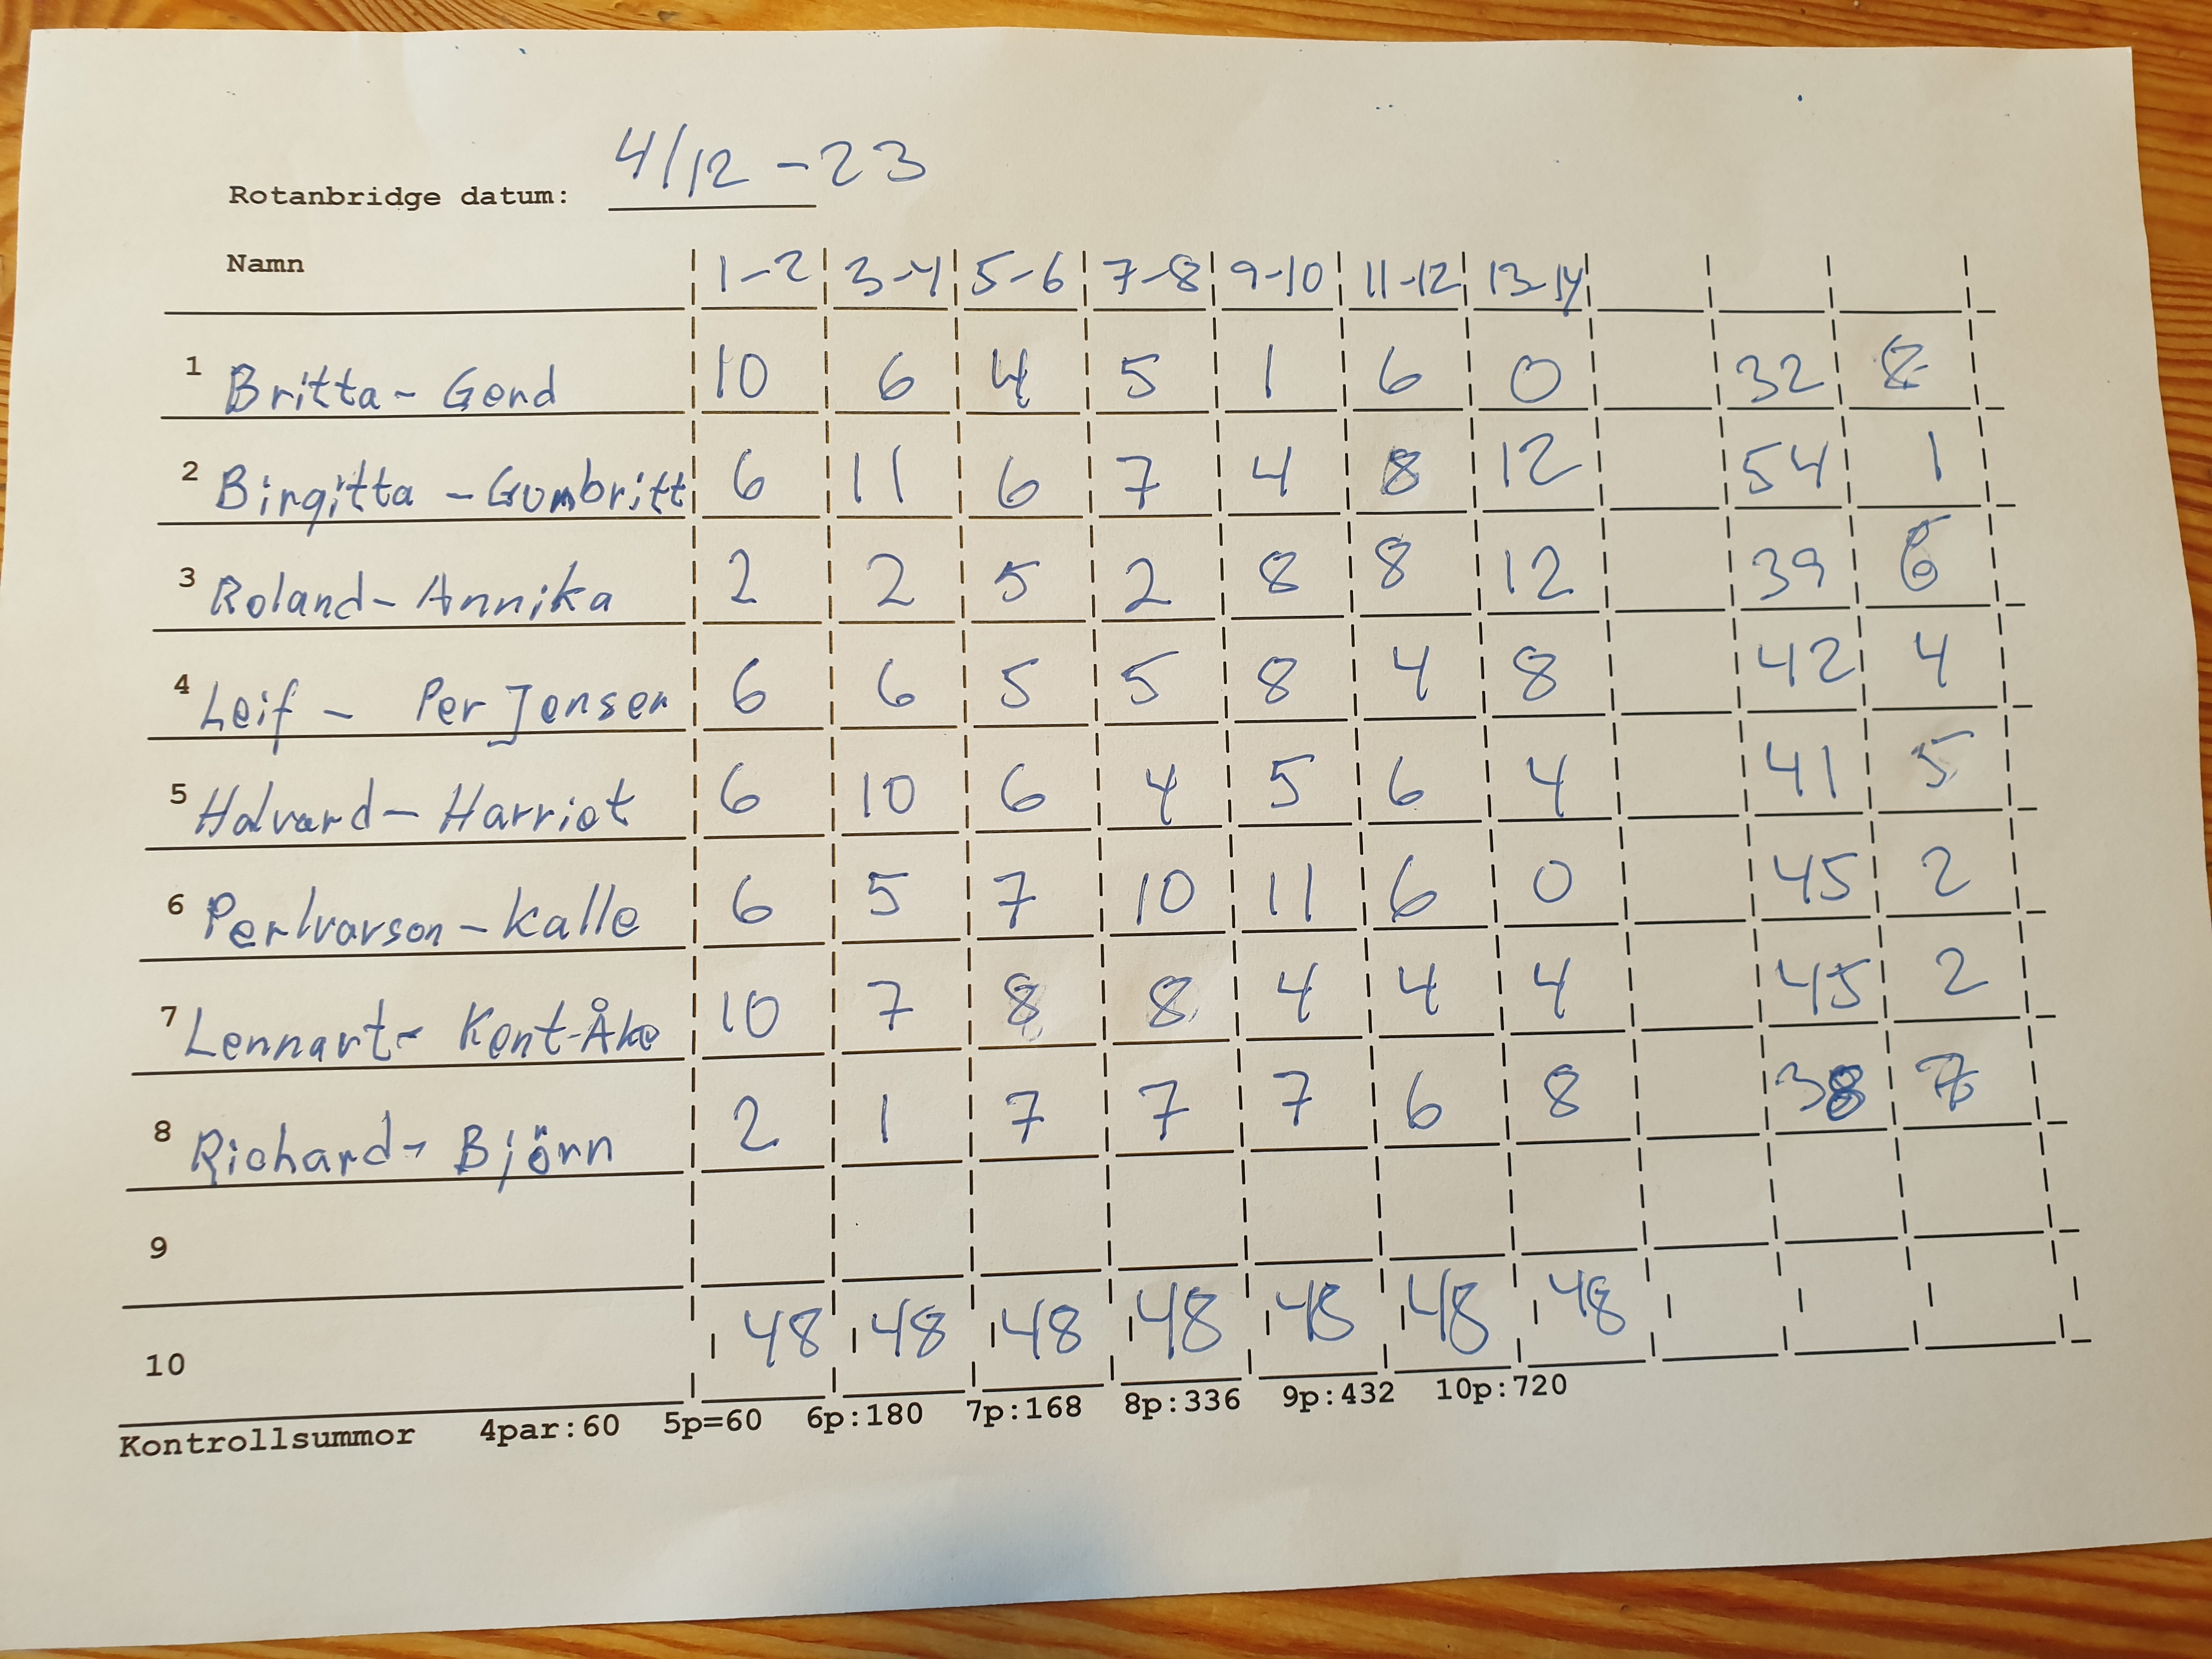 4/12 - 23
Rotanbridge datum:
Namn 1-2 3-4 5-6 7-8 9-10 11-12 13-14
1 Britta - Gerd 10 6 4 5 1 6 0 32 8
2 Birgitta - Gumbritt 6 11 6 7 4 8 12 54 1
3 Roland - Annika 2 2 5 2 8 8 12 39 6
4 Leif - Per Jensen 6 6 5 5 8 4 8 42 4
5 Halvard - Harriet 6 10 6 4 5 6 4 41 5
6 Per Ivarson - Kalle 6 5 7 10 11 6 0 45 2
7 Lennart - Kent-Åke 10 7 8 8 4 4 4 45 2
8 Richard - Björn 2 1 7 7 7 6 8 38 7
9
10 48 48 48 48 48 48 48
Kontrollsummor 4par:60 5p=60 6p:180 7p:168 8p:336 9p:432 10p:720